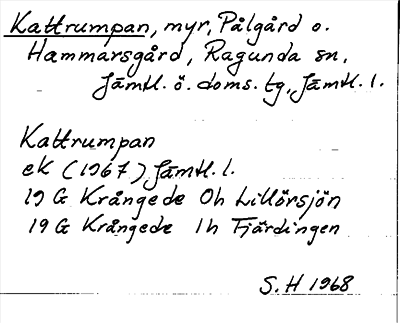 Kattrumpan, myr, Pålgård o.
Hammarsgård, Ragunda sn,
Jämtl. ö. doms. tg, Jämtl. l.
Kattrumpan
ek (1967) Jämtl. l.
19 G Krångede 0h Lillörsjön
19 G Krångede 1h Tjärdingen
S. H 1968